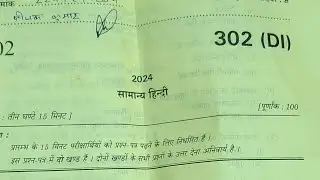 302 (DI)
02
2024
सामान्य हिन्दी
तीन घण्टे 15 मिनट ]
[ पूर्णांक : 100
प्रारम्भ के 15 मिनट परीक्षार्थियों को प्रश्न-पत्र पढ़ने के लिए निर्धारित हैं ।
इस प्रश्न-पत्र में दो खण्ड हैं । दोनों खण्डों के सभी प्रश्नों के उत्तर देना अनिवार्य है ।